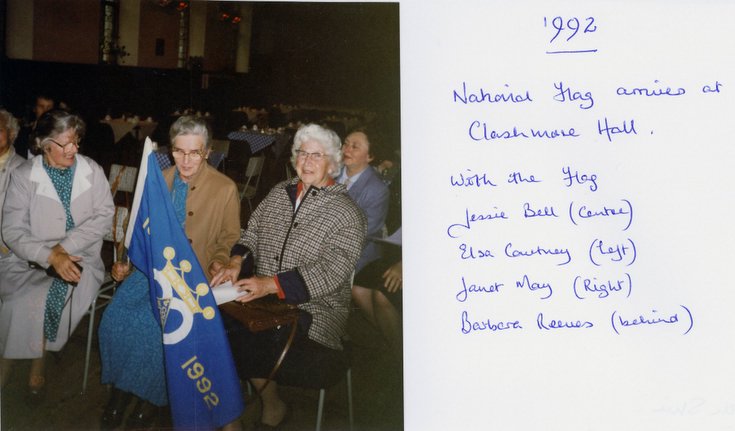 1992
National Flag arrives at
Clashmore Hall.
With the Flag
Jessie Bell (Centre)
Elsa Courtney (left)
Janet May (Right)
Barbara Reeves (behind)
1992